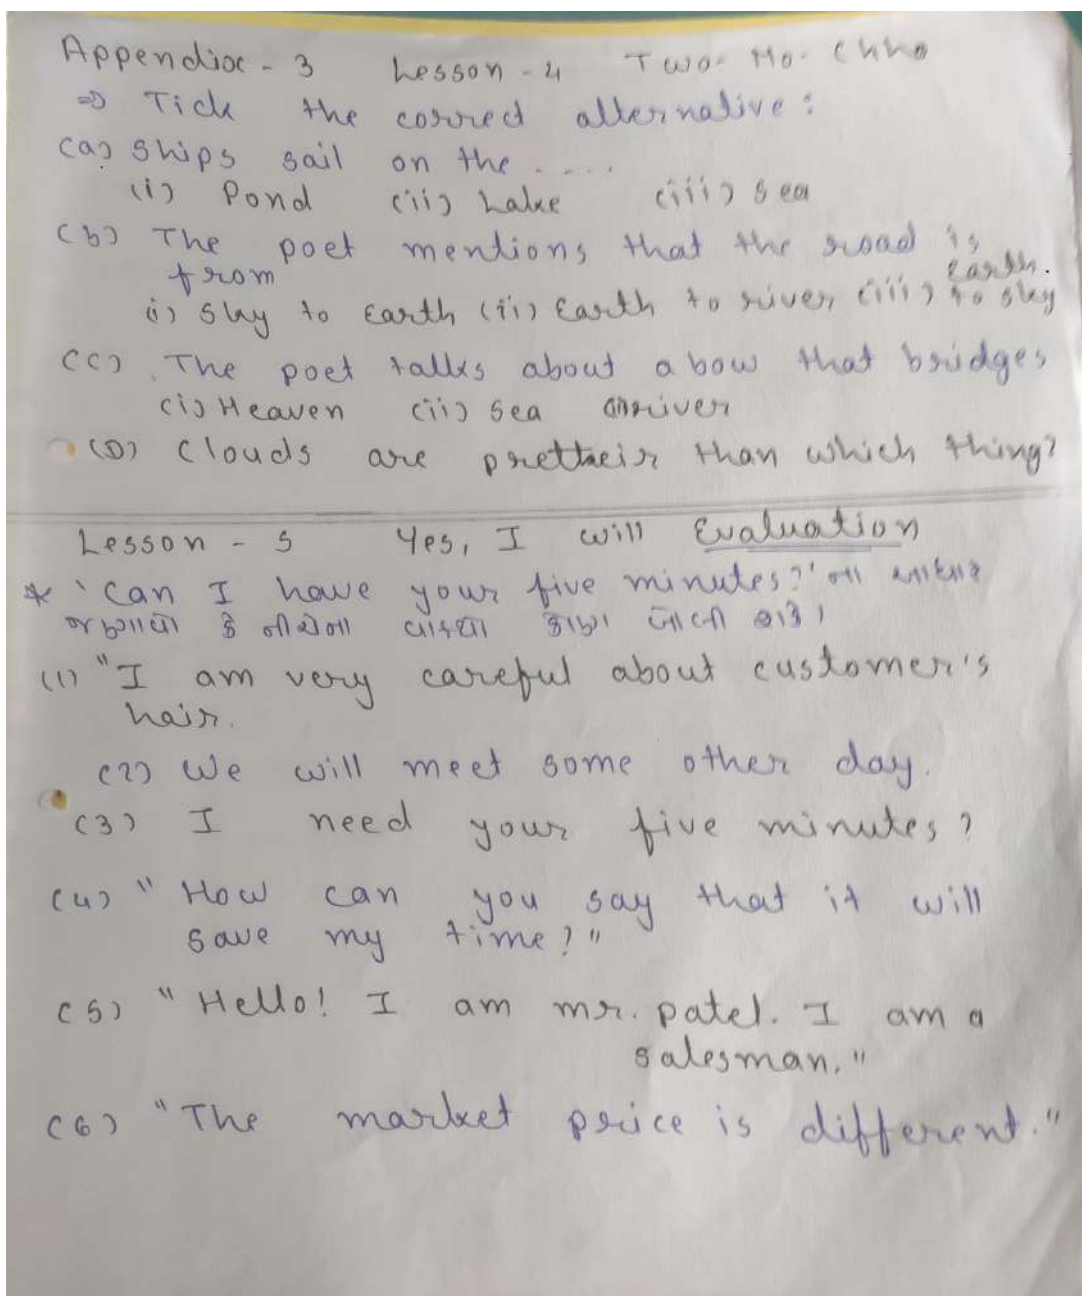 Appendix - 3 Lesson - 4 Two- Mo- Chho
⇒ Tick the correct alternative :
(a) Ships sail on the ....
(i) Pond (ii) Lake (iii) Sea
(b) The poet mentions that the road is
from
i) Sky to Earth (ii) Earth to river (iii) earth. to sky
(c) The poet talks about a bow that bridges
(i) Heaven (ii) Sea (iii) river
(D) Clouds are prettheir than which thing?
Lesson - 5 Yes, I will Evaluation
* 'Can I have your five minutes?' ના આધારે
જણાવો કે નીચેના વાક્યો કોણ બોલી શકે।
(1) "I am very careful about customer's
hair.
(2) We will meet some other day.
(3) I need your five minutes?
(4) "How can you say that it will
save my time?"
(5) "Hello! I am mr. patel. I am a
salesman."
(6) "The market price is different."